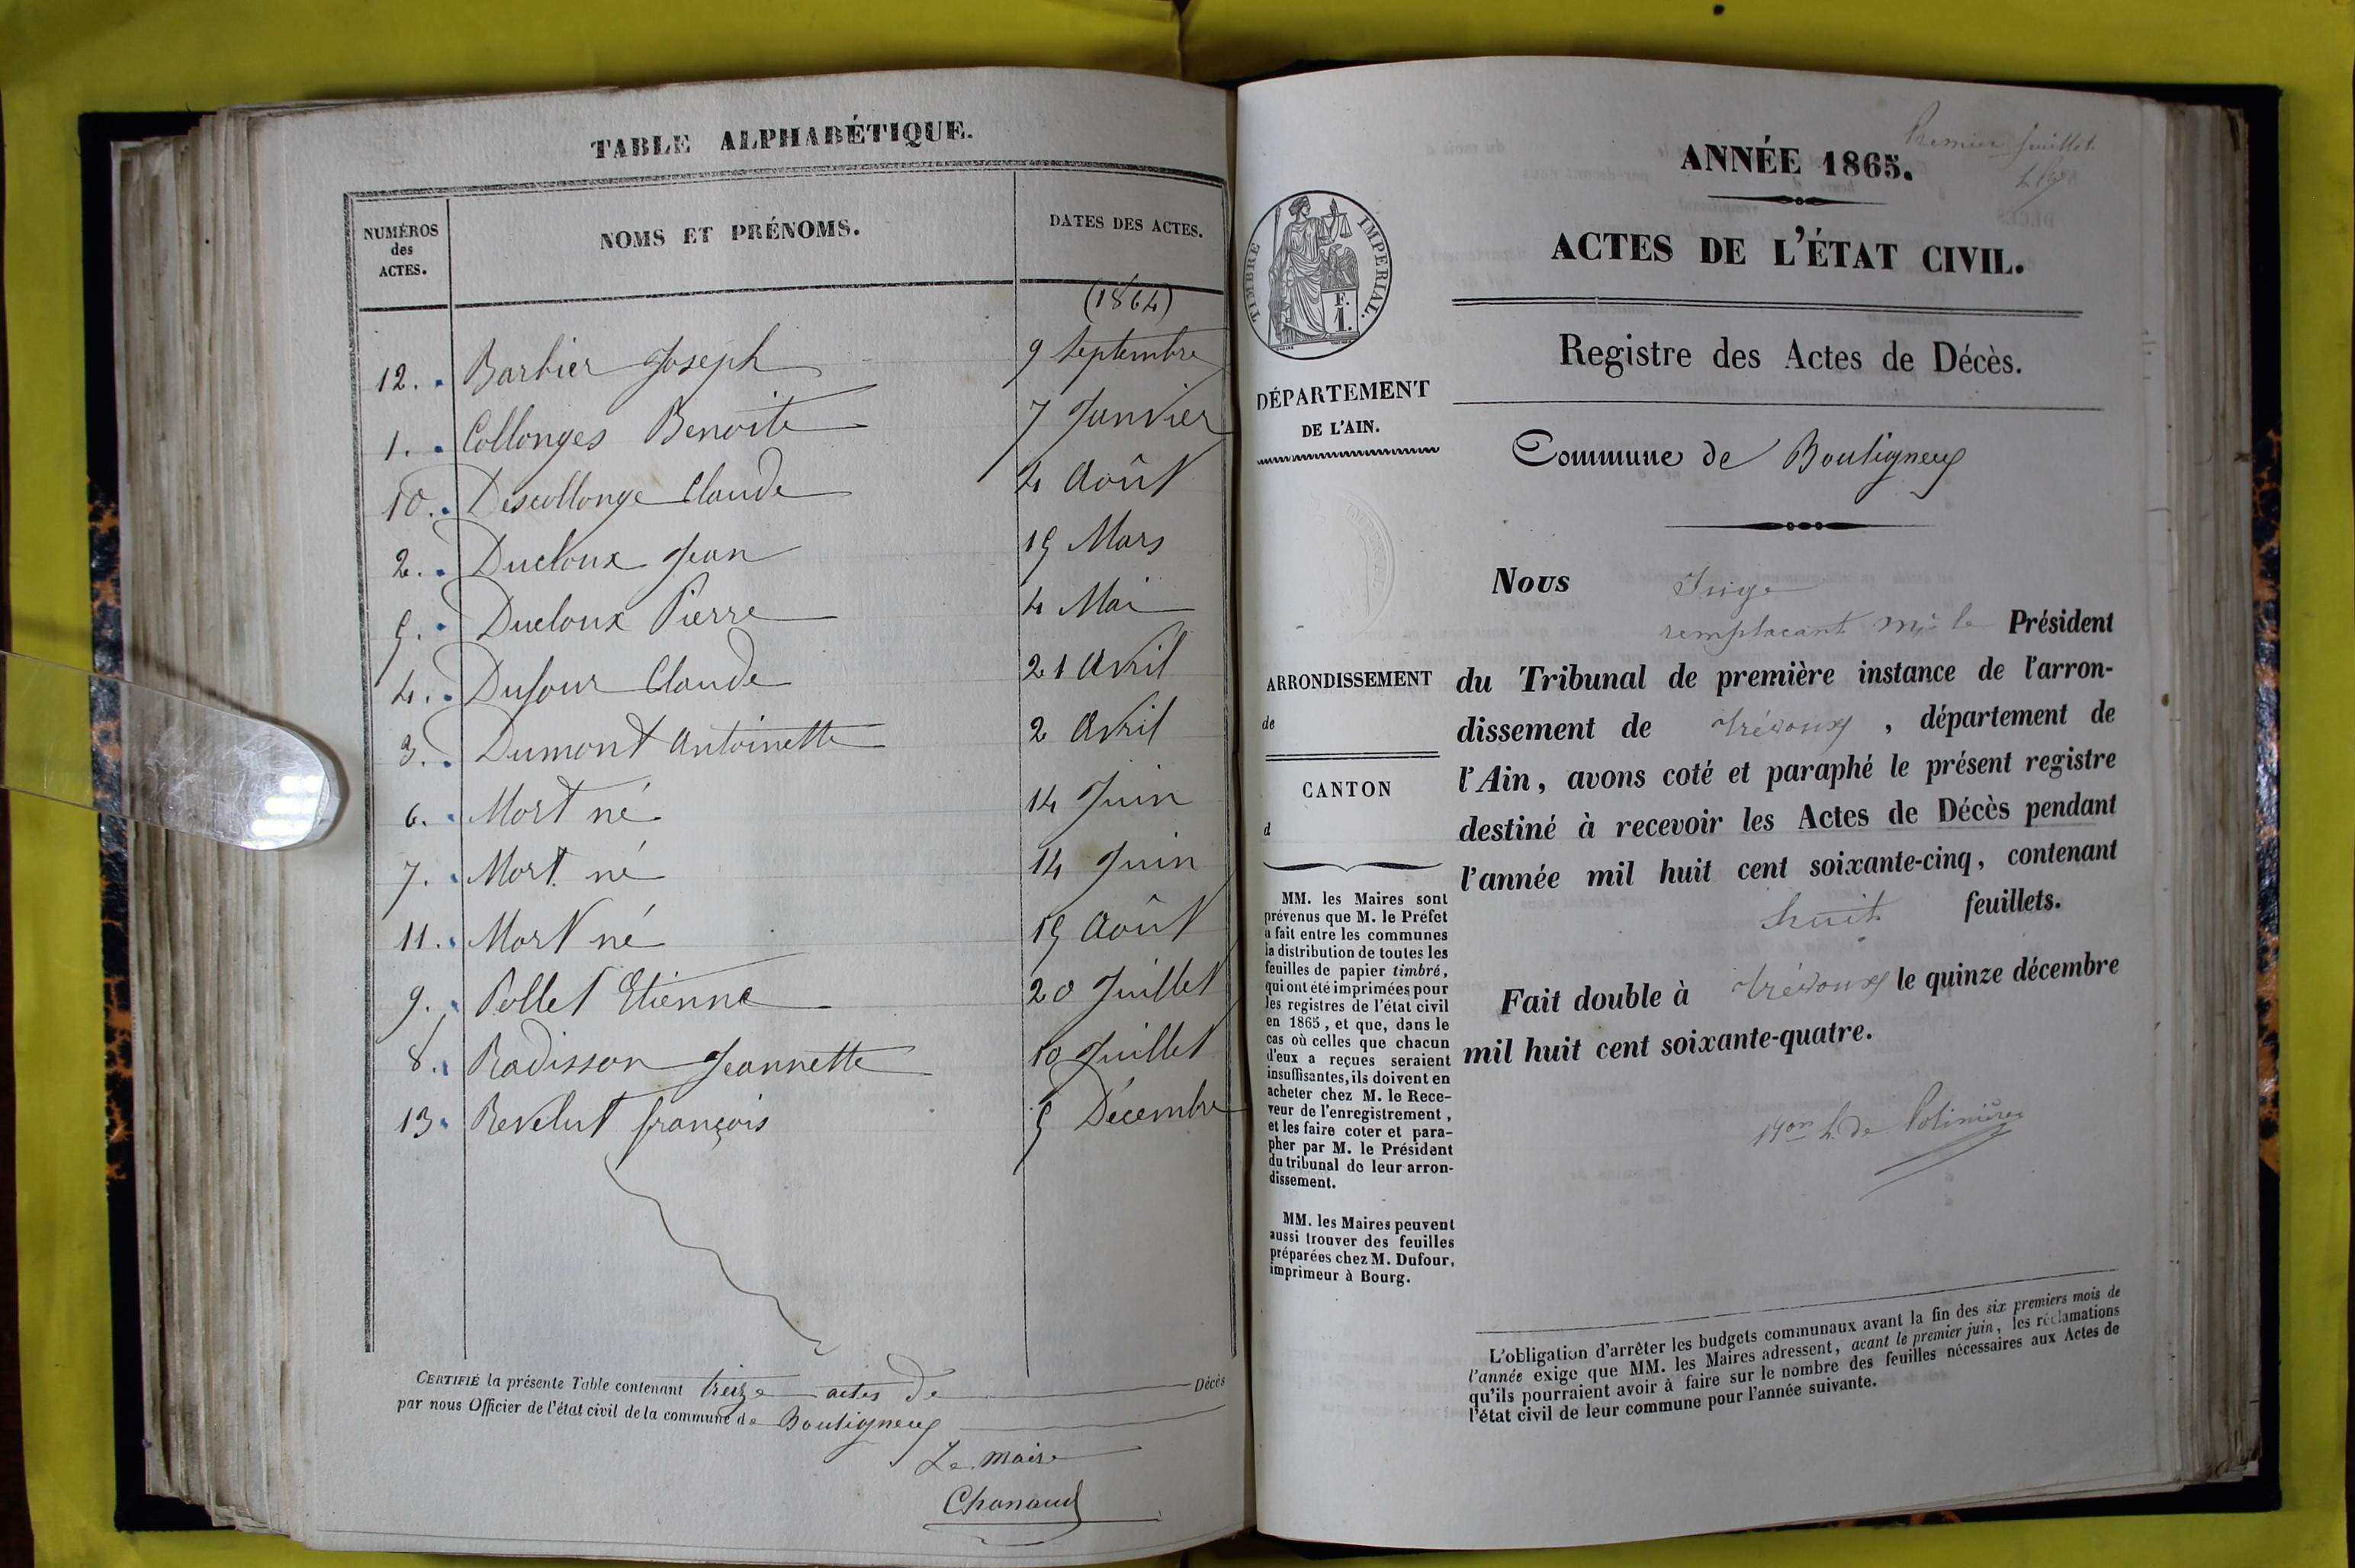 TABLE ALPHABÉTIQUE.
NUMÉROS des ACTES. NOMS ET PRÉNOMS. DATES DES ACTES.
(1864)
12. Barbier Joseph 9 Septembre
1. Collonges Benoite 7 Janvier
10. Descollonge Claude 4 Août
2. Ducloux Jean 15 Mars
5. Ducloux Pierre 4 Mai
4. Dufour Claude 21 Avril
3. Dumont Antoinette 2 Avril
6. Mort né 14 Juin
7. Mort né 14 Juin
11. Mort né 15 Août
9. Pollet Etienne 20 Juillet
8. Radisson Jeannette 10 Juillet
13 Revelut françois 5 Décembre
CERTIFIÉ la présente Table contenant treize actes de Décès
par nous Officier de l'état civil de la commune de Bouligneux
Le Maire
Chanaud
Premier feuillet
ANNÉE 1865.
ACTES DE L'ÉTAT CIVIL.
Registre des Actes de Décès.
TIMBRE IMPÉRIAL.
F.
1.
DÉPARTEMENT
DE L'AIN.
Commune de Bouligneux
ARRONDISSEMENT
de
CANTON
d
MM. les Maires sont
prévenus que M. le Préfet
a fait entre les communes
la distribution de toutes les
feuilles de papier timbré,
qui ont été imprimées pour
les registres de l'état civil
en 1865, et que, dans le
cas où celles que chacun
d'eux a reçues seraient
insuffisantes, ils doivent en
acheter chez M. le Rece-
veur de l'enregistrement,
et les faire coter et para-
pher par M. le Président
du tribunal de leur arron-
dissement.
MM. les Maires peuvent
aussi trouver des feuilles
préparées chez M. Dufour,
imprimeur à Bourg.
Nous Juge
remplacant Mr le Président
du Tribunal de première instance de l'arron-
dissement de Trévoux, département de
l'Ain, avons coté et paraphé le présent registre
destiné à recevoir les Actes de Décès pendant
l'année mil huit cent soixante-cinq, contenant
huit feuillets.
Fait double à Trévoux le quinze décembre
mil huit cent soixante-quatre.
de Polinière
L'obligation d'arrêter les budgets communaux avant la fin des six premiers mois de
l'année exige que MM. les Maires adressent, avant le premier juin, les réclamations
qu'ils pourraient avoir à faire sur le nombre des feuilles nécessaires aux Actes de
l'état civil de leur commune pour l'année suivante.